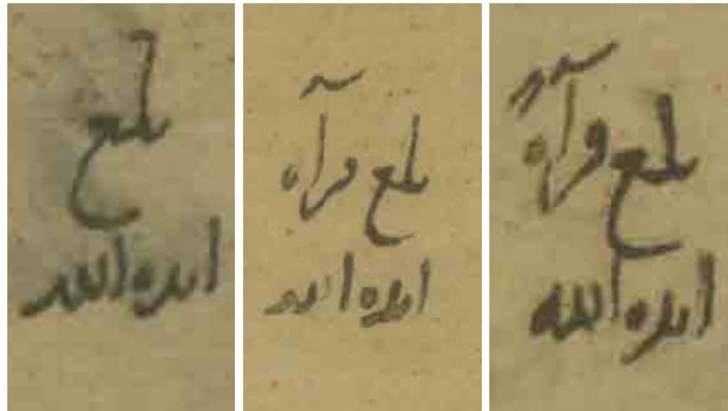 بلغ
ايده الله
بلغ قرآه
ايده الله
بلغ قرآه
ايده الله